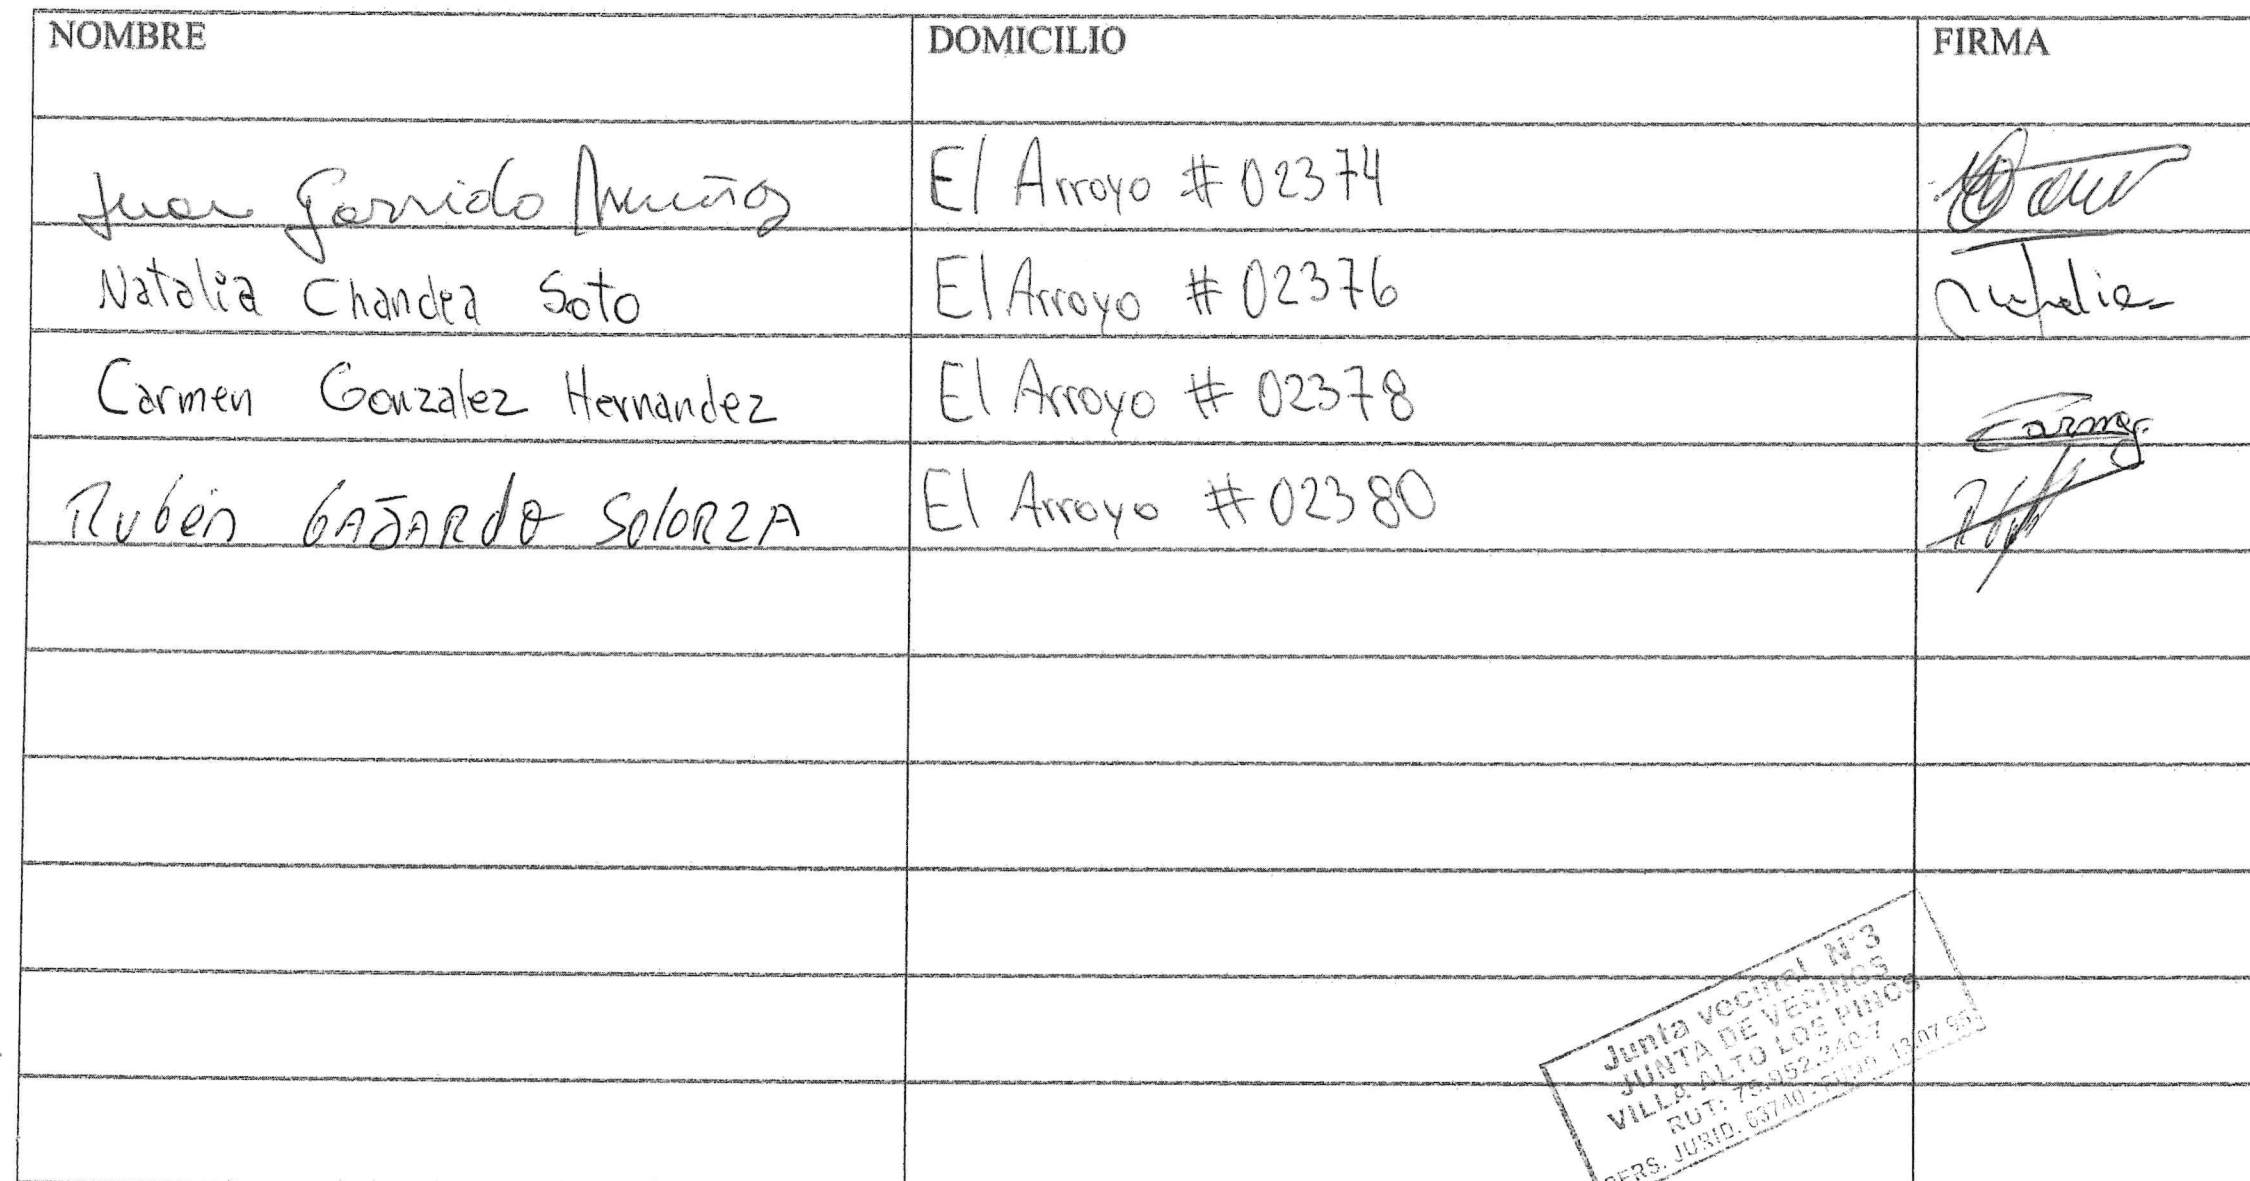 NOMBRE DOMICILIO FIRMA
Juan Garrido Muñoz El Arroyo # 02374
Natalia Chandia Soto El Arroyo # 02376 Natalia
Carmen Gonzalez Hernandez El Arroyo # 02378 Carmen
Rubén GAJARdO SOlORZA El Arroyo # 02380
Junta vecinal N°3
JUNTA DE VECINOS
VILLA ALTO LOS PINOS
RUT: 75.952.240-7
PERS. JURID. 13.07.95